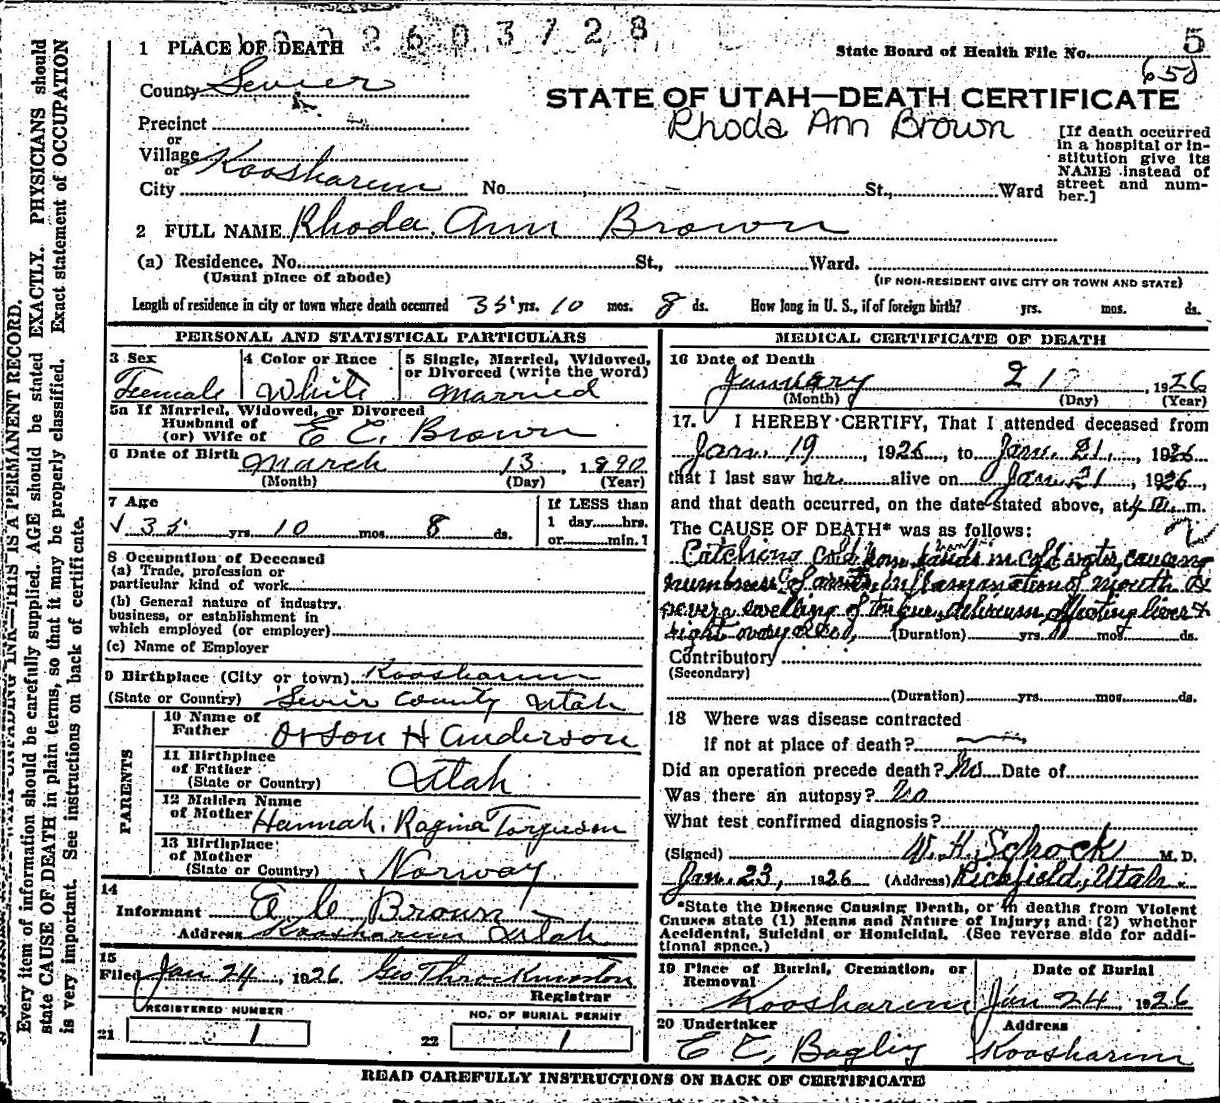 2603128
1 PLACE OF DEATH
State Board of Health File No. 5
658
County Sevier
STATE OF UTAH—DEATH CERTIFICATE
Rhoda Ann Brown
Precinct
or
Village
or
City Koosharem No. St., Ward
[If death occurred
in a hospital or in-
stitution give its
NAME instead of
street and num-
ber.]
2 FULL NAME Rhoda Ann Brown
(a) Residence. No. St., Ward.
(Usual place of abode)
(IF NON-RESIDENT GIVE CITY OR TOWN AND STATE)
Length of residence in city or town where death occurred 35 yrs. 10 mos. 8 ds. How long in U. S., if of foreign birth? yrs. mos. ds.
PERSONAL AND STATISTICAL PARTICULARS
3 Sex
Female
4 Color or Race
White
5 Single, Married, Widowed,
or Divorced (write the word)
Married
5a If Married, Widowed, or Divorced
Husband of
(or) Wife of E C. Brown
6 Date of Birth March 13, 1890
(Month) (Day) (Year)
7 Age
35 yrs. 10 mos. 8 ds.
If LESS than
1 day hrs.
or min.?
8 Occupation of Deceased
(a) Trade, profession or
particular kind of work
(b) General nature of industry,
business, or establishment in
which employed (or employer)
(c) Name of Employer
9 Birthplace (City or town) Koosharem
(State or Country) Sevier County Utah
PARENTS
10 Name of
Father Orson H Anderson
11 Birthplace
of Father
(State or Country) Utah
12 Maiden Name
of Mother Hannah Ragina Torgusen
13 Birthplace
of Mother
(State or Country) Norway
14
Informant E C Brown
Address Koosharem Utah
15
Filed Jan 24, 1926. Geo Throckmorton
Registrar
REGISTERED NUMBER
21 1
NO. OF BURIAL PERMIT
22 1
MEDICAL CERTIFICATE OF DEATH
16 Date of Death
January 21, 1926
(Month) (Day) (Year)
17. I HEREBY CERTIFY, That I attended deceased from
Jan. 19, 1926, to Jan. 21, 1926
that I last saw her alive on Jan. 21, 1926,
and that death occurred, on the date stated above, at m.
The CAUSE OF DEATH* was as follows:
Catching cold from hands in cold water, causing
numbness of arms, inflammation of mouth &
severe swelling of tongue, delirium affecting liver &
right ovary also, (Duration) yrs. mos. ds.
Contributory
(Secondary)
(Duration) yrs. mos. ds.
18 Where was disease contracted
If not at place of death?
Did an operation precede death? No Date of
Was there an autopsy? No
What test confirmed diagnosis?
(Signed) W. H. Schock M. D.
Jan. 23, 1926 (Address) Richfield, Utah.
*State the Disease Causing Death, or in deaths from Violent
Causes state (1) Means and Nature of Injury; and (2) whether
Accidental, Suicidal or Homicidal. (See reverse side for addi-
tional space.)
19 Place of Burial, Cremation, or
Removal
Koosharem
Date of Burial
Jan 24 1926
20 Undertaker
E C. Bagley
Address
Koosharem
READ CAREFULLY INSTRUCTIONS ON BACK OF CERTIFICATE
THIS IS A PERMANENT RECORD.
Every item of information should be carefully supplied. AGE should be stated EXACTLY. PHYSICIANS should
state CAUSE OF DEATH in plain terms, so that it may be properly classified. Exact statement of OCCUPATION
is very important. See instructions on back of certificate.